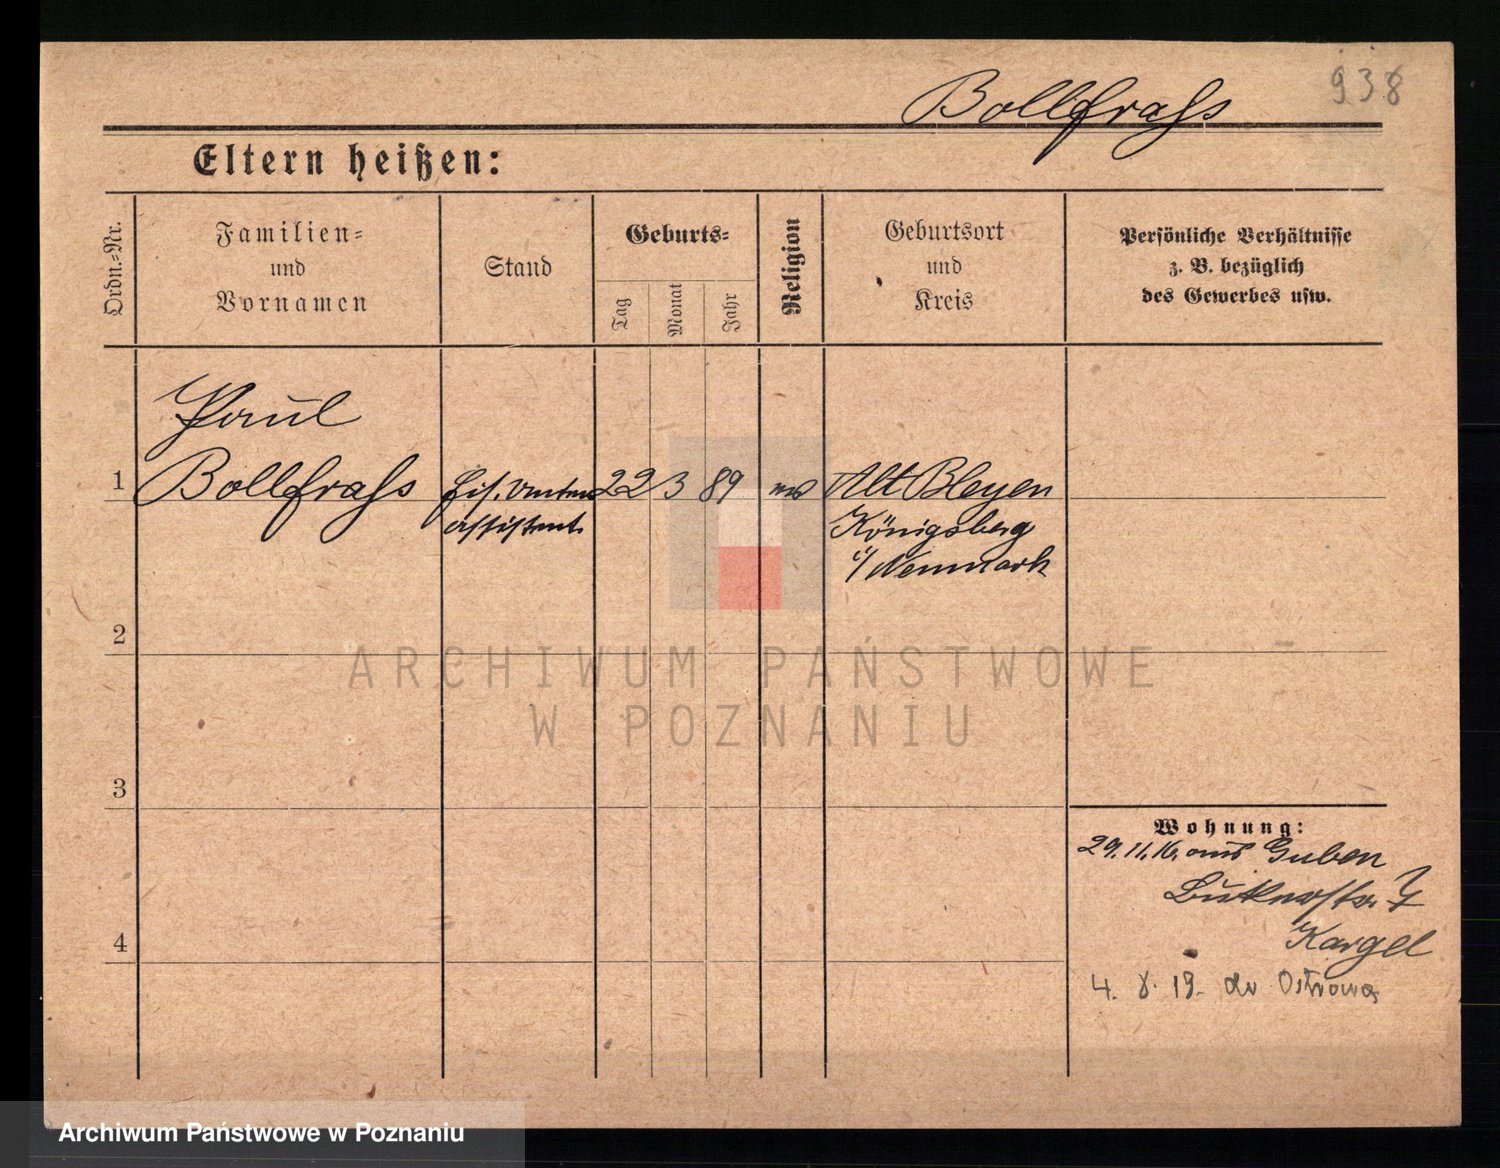 938
Bollfraß
Eltern heißen:
Ordn.-Nr.
Familien-
und
Vornamen
Stand
Geburts-
Tag
Monat
Jahr
Religion
Geburtsort
und
Kreis
Persönliche Verhältnisse
z. B. bezüglich
des Gewerbes usw.
Paul
1 Bollfraß Eis. 22 3 89 Alt Bleyen
assistent Königsberg
i/ Neumark
2
ARCHIWUM PAŃSTWOWE
W POZNANIU
3
Wohnung:
29.11.16. aus Guben
Kargel
4
4. 8. 19. Ostrowo
Archiwum Państwowe w Poznaniu